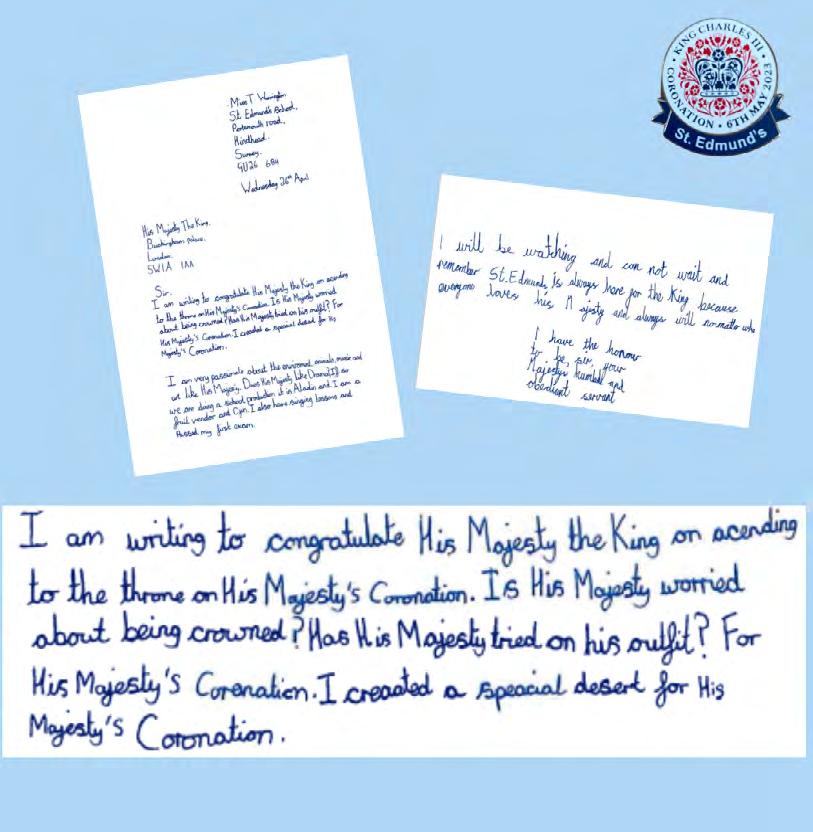 KING CHARLES III
CORONATION • 6TH MAY 2023
St. Edmund's
Miss T
St. Edmund's School,
Portsmouth road,
Hindhead.
Surrey.
GU26
Wednesday 26th April
His Majesty The King,
Buckingham palace,
London.
SW1A 1AA
Sir.
I am writing to congratulate His Majesty the King on acending
to the throne on His Majesty's Coronation. Is His Majesty worried
about being crowned? Has His Majesty tried on his outfit? For
His Majesty's Coronation. I creacted a speacial desert for His
Majesty's Coronation.
I am very passionate about the animals, music and
art like His Majesty. Does His Majesty like Drama? If so
we are doing a school production it is Aladin and I am a
fruit vendor and I also have singing lessons and
Passed my first exam.
I will be watching and can not wait and
remember St. Edmunds is always here for the King because
everyone loves his Majesty and always will no matter
I have the honour
to be, sir, your
Majestys humble and
obedient servant
I am writing to congratulate His Majesty the King on acending
to the throne on His Majesty's Coronation. Is His Majesty worried
about being crowned? Has His Majesty tried on his outfit? For
His Majesty's Coronation. I creacted a speacial desert for His
Majesty's Coronation.